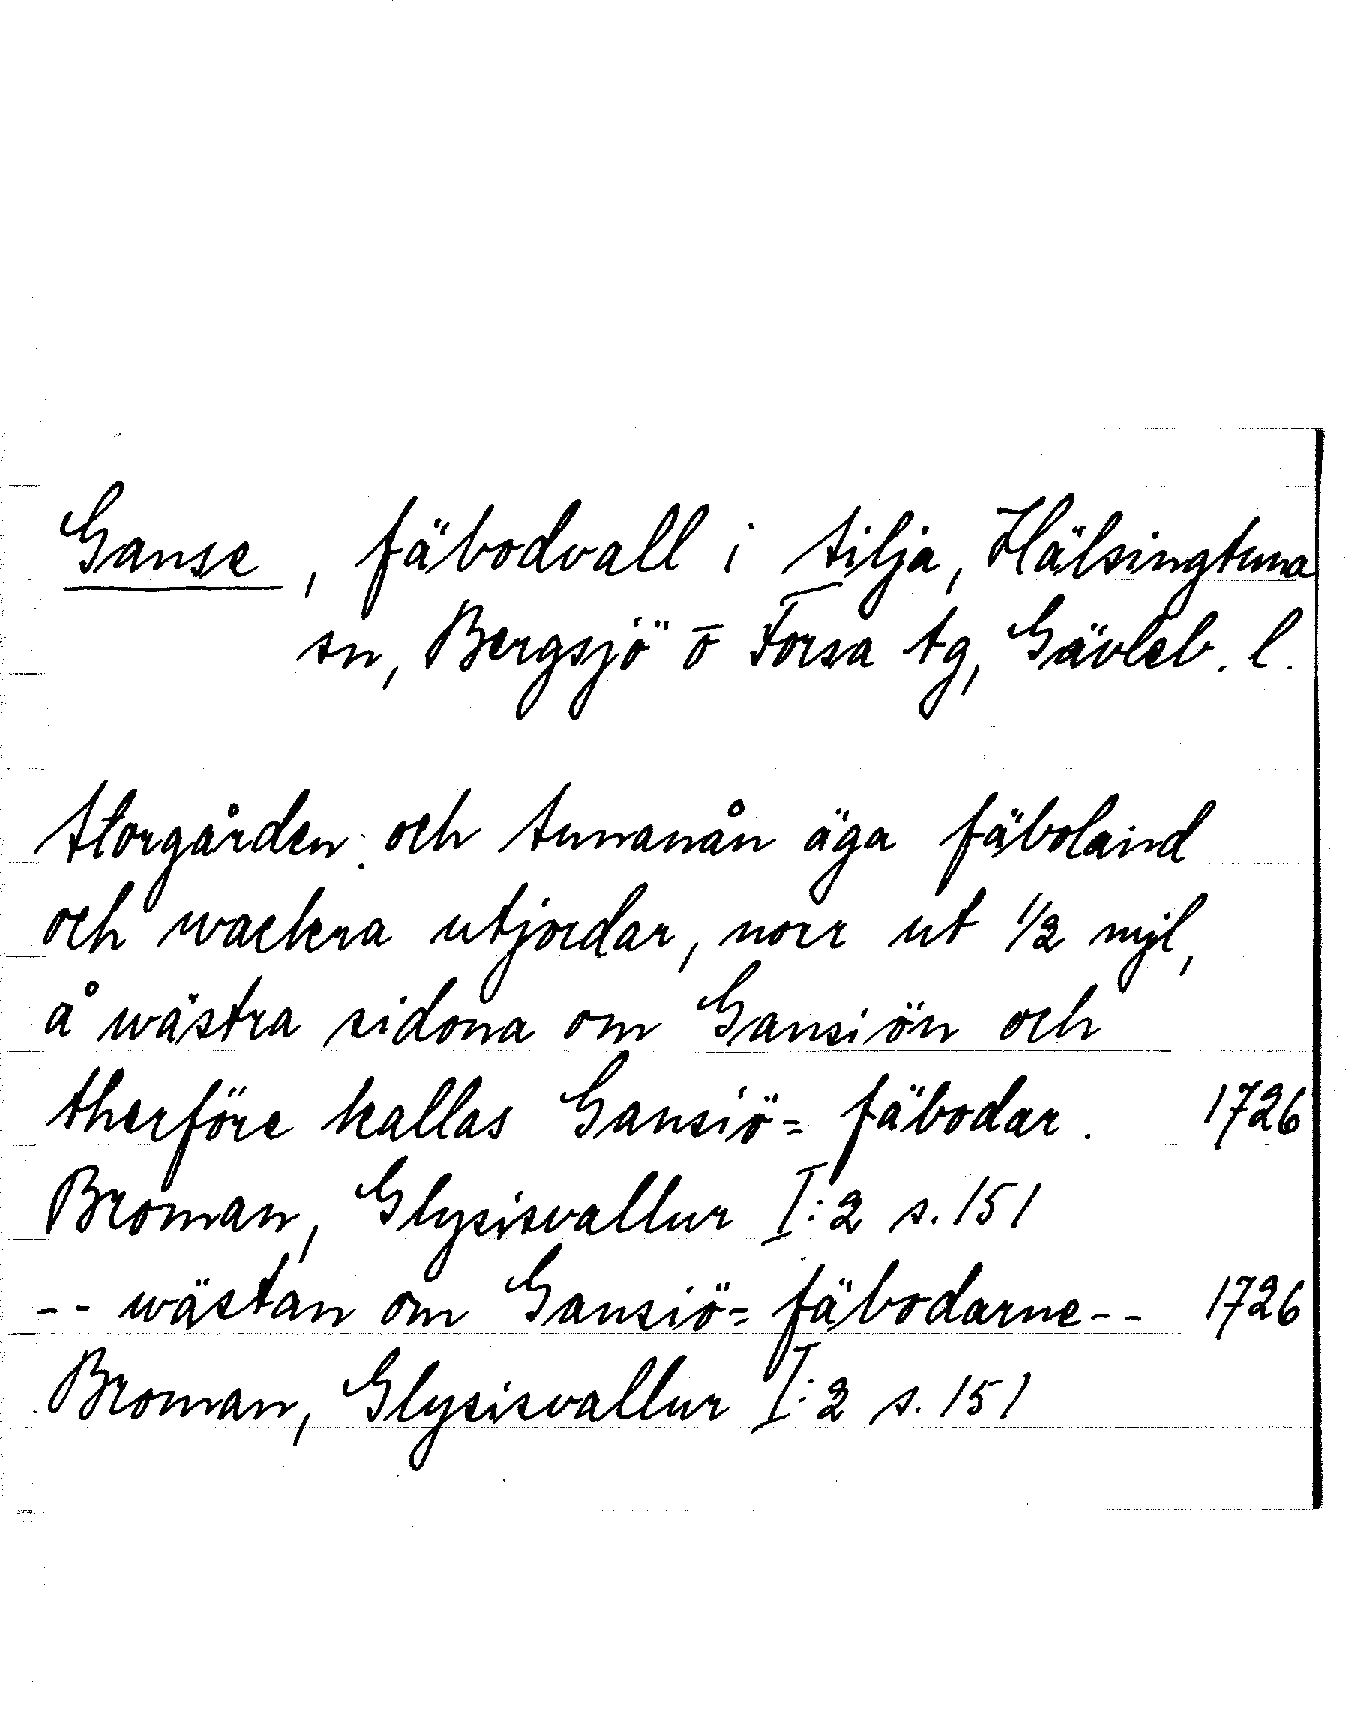 Ganse, fäbodvall i Tilja, Hälsingtuna
sn, Bergsjö o Forsa tg, Gävleb. l.
Horgården och Tunanån äga fäboland
och wackra utjordar, norr ut 1/2 mjl,
å wästra sidona om Gansiön och
therföre kallas Gansiö= fäbodar. 1726
Broman, Glysisvallur I:2 s. 151
-- wästan om Gansiö= fäbodarne-- 1726
Broman, Glysisvallur I:2 s. 151